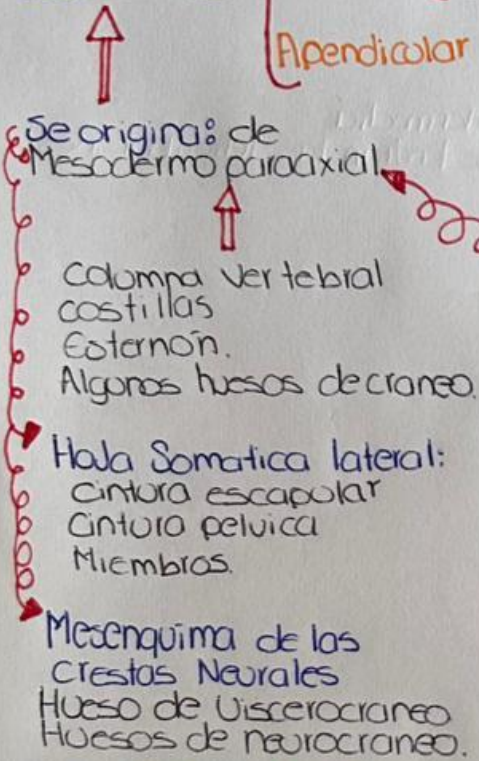 Apendicular
Se origina: de
Mesodermo paraaxial
Columna vertebral
costillas
Esternón.
Algunos huesos de craneo.
Hoja Somatica lateral:
Cintura escapular
Cintura pelvica
Miembros.
Mesenquima de las
crestas Neurales
Hueso de viscerocraneo
Huesos de neurocraneo.